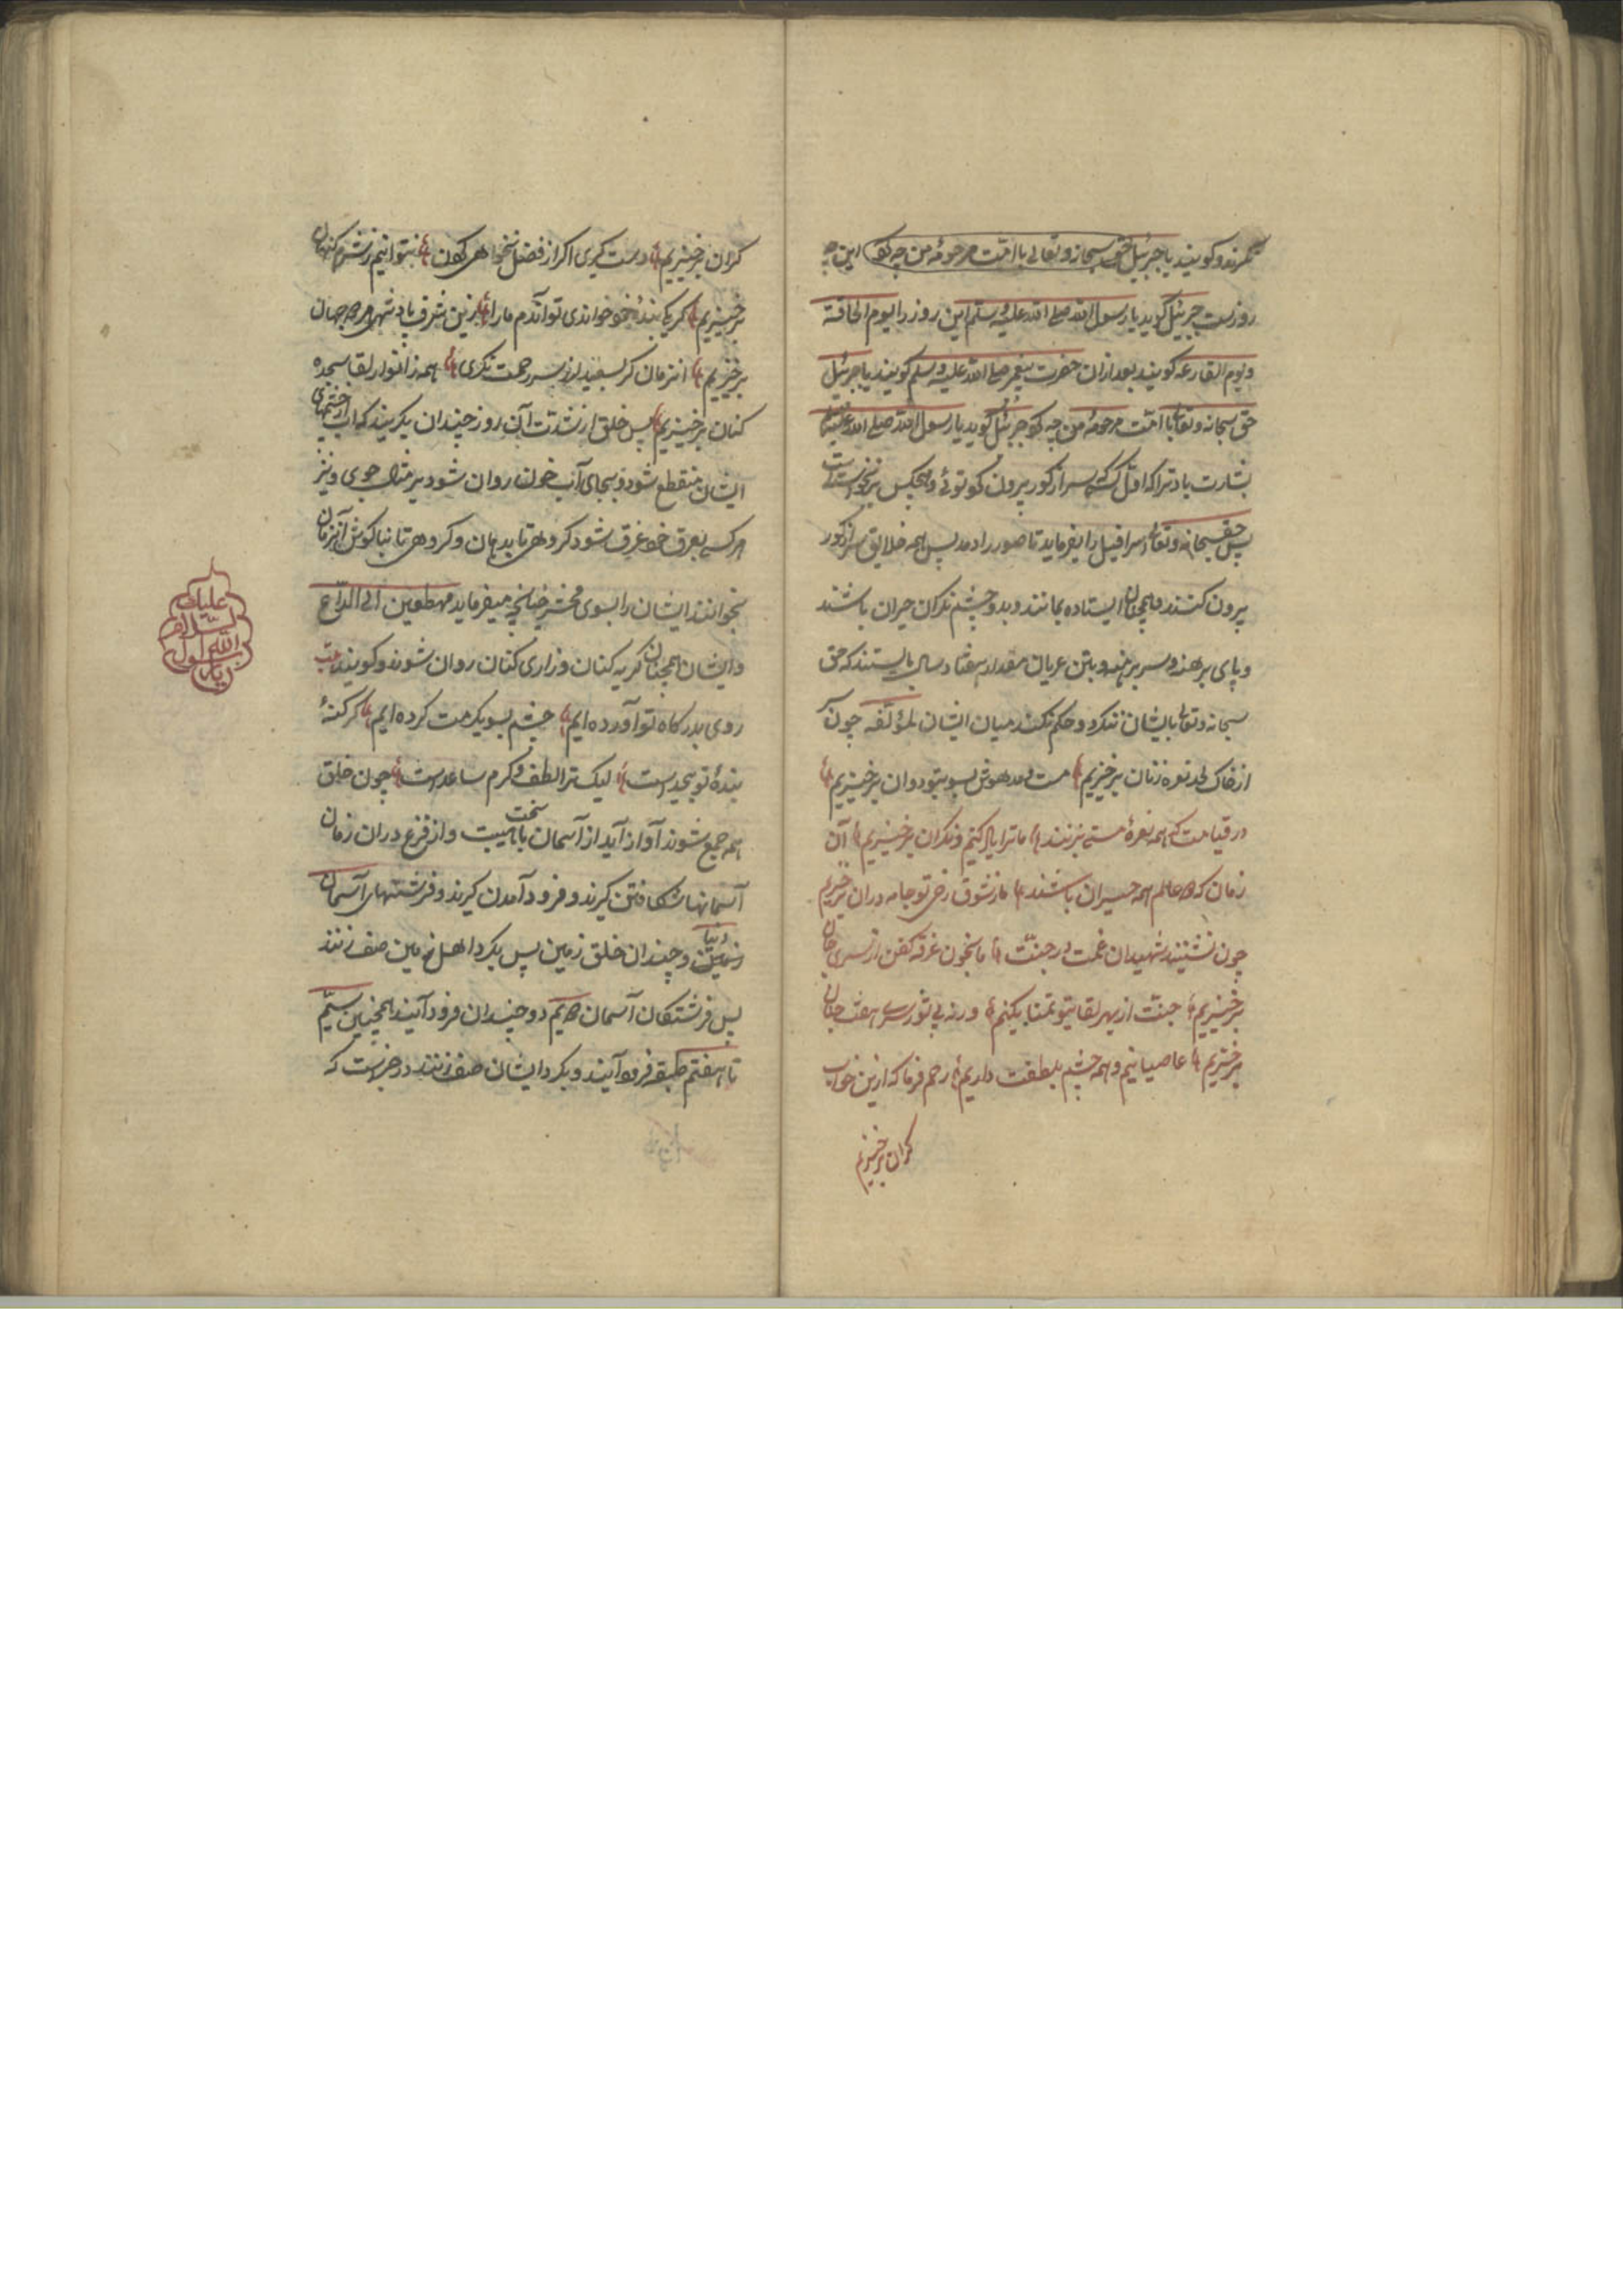 نگرند و کویند یا جبرئیل حق سبحانه و تعالی با امّت مرحومهٔ من چه کرد این چه
روزست جبرئیل کوید یا رسول الله صلی الله علیه و سلم این روز را یوم الحاقه
و یوم القارعه کویند بعد ازان حضرت پیغمبر صلی الله علیه و سلم کویند یا جبرئیل
حق سبحانه و تعالی با امّت مرحومهٔ من چه کرد جبرئیل کوید یا رسول الله صلی الله علیه
بشارت باد ترا که اول کسی سر از کور بیرون کرد توئے و هیچکس برنخواسته است
پس حق سبحانه و تعالی اسرافیل را بفرماید تا صور را دمد پس همه خلایق سر از کور
بیرون کنند و همچنان ایستاده بمانند و بدو چشم نکران حیران باشند
و پای برهنه و سر برهنه و بتن عریان مقدار هفتاد سال بایستند که حق
سبحانه و تعالی بایشان ننکرد و حکم نکند میان ایشان لمؤلّفه چون
از خاک لحد نعره زنان برخیزیم مست و مدهوش بسویتو دوان برخیزیم
در قیامت که همه نعرهٔ مستی بزنند ما ترا یاد کنیم و نکران برخیزیم آن
زمان که همه عالم همه حیران باشند ما ز شوق رخ تو جامه دران برخیزیم
چون نشینند شهیدان غمت در جنّت ما بخون غرقه کفن از سر جان
برخیزیم جنّت از بهر لقایتو تمنا بکنیم ورنه بی تو ز سر هفت جنان
برخیزیم عاصیانیم و همه چشم بلطفت داریم رحم فرما که ازین خواب
کران برخیزیم
کران برخیزیم دست کیری اکر از فضل نخواهی کردن نتوانیم ز شرم کنهان
برخیزیم کر یکی بندهٔ خود خواندی تو آندم ما را زین شرف پادشه هر دو جهان
برخیزیم انزمان کر بسفیدان ز سر رحمت نکری همه ز انوار لقا سجده
کنان برخیزیم پس خلق از شدت آن روز چندان بکریند که آب از چشمهای
ایشان منقطع شود و بجای آب خون روان شود بر مثال جوی و نیز
هر کسی بعرق خود غرق شود کروهی تا بدهان و کروهی تا بنا کوش آنزمان
بخوانند ایشان را بسوی محشر چنانچه میفرماید مهطعین الی الداع
و ایشان همچنان کریه کنان و زاری کنان روان شوند و کویند بیت
روی بدرکاه تو آورده ایم چشم بسویکرمت کرده ایم کر کنهٔ
بندهٔ تو بیحد است لیک ترا لطف و کرم ساعد است چون خلق
همه جمع شوند آواز آید از آسمان با هیبت سخت و از فزع دران زمان
آسمانها شکافتن کیرند و فرود آمدن کیرند و فرشتهای آسمان
دنیا
و چندان خلق زمین پس بکرد اهل زمین صف زنند
پس فرشتکان آسمان دویم دو چندان فرود آیند همچنین سیّم
تا هفتم طبقه فرود آیند و بکرد ایشان صف زنند در خبر است که
علیک
السلام
یا رسول الله